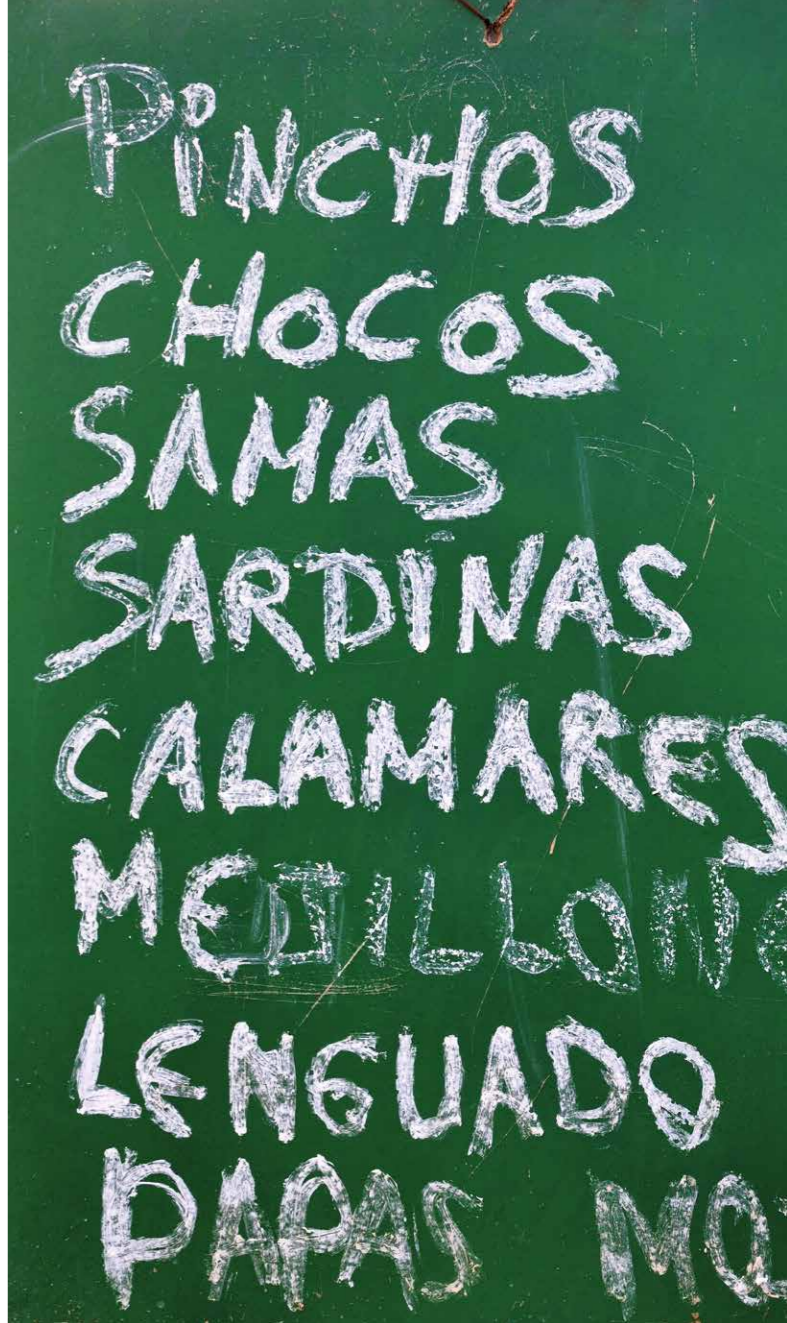 PiNCHOS
CHOCOS
SAMAS
SARDINAS
CALAMARES
MEJILLONE
LENGUADO
PAPAS MO